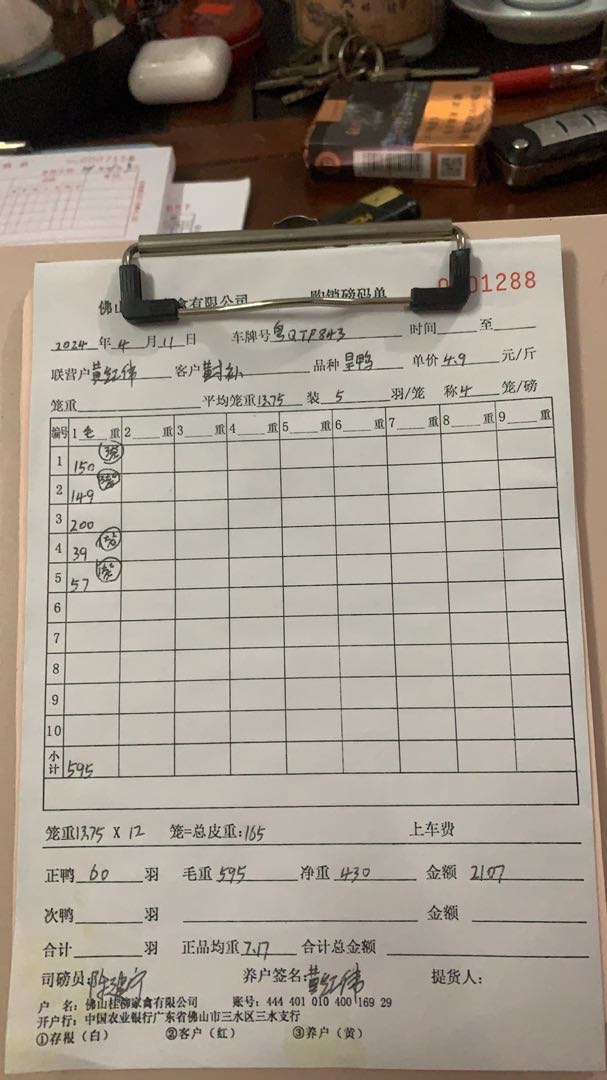 佛山 禽有限公司 购销磅码单 01288
2024 年 4 月 11 日 车牌号 粤QTP843 时间 至
联营户 黄红伟 客户 品种 旱鸭 单价 4.9 元/斤
笼重 平均笼重 13.75 装 5 羽/笼 称 4 笼/磅
编号 1 毛 重 2 重 3 重 4 重 5 重 6 重 7 重 8 重 9 重
1 150
2 149
3 200
4 39
5 57
6
7
8
9
10
小计 595
笼重 13.75 X 12 笼=总皮重: 165 上车费
正鸭 60 羽 毛重 595 净重 430 金额 2107
次鸭 羽 金额
合计 羽 正品均重 7.17 合计总金额
司磅员: 养户签名: 黄红伟 提货人:
户 名: 佛山桂柳家禽有限公司 账号: 444 401 010 400 169 29
开户行: 中国农业银行广东省佛山市三水区三水支行
①存根（白） ②客户（红） ③养户（黄）